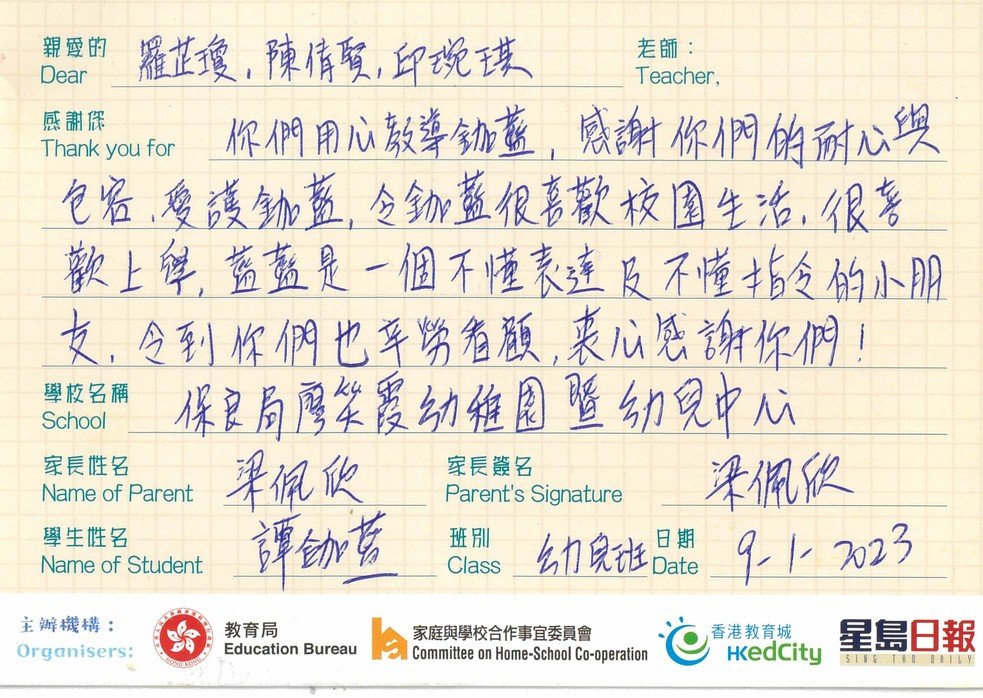 親愛的 羅芷瓊，陳倩賢，邱琬琪 老師：
Dear Teacher,
感謝您
Thank you for 你們用心教導鈿藍，感謝你們的耐心與
包容、愛護鈿藍，令鈿藍很喜歡校園生活，很喜
歡上學，藍藍是一個不懂表達及不懂指令的小朋
友，令到你們也辛勞看顧，衷心感謝你們！
學校名稱
School 保良局廖笑霞幼稚園暨幼兒中心
家長姓名 家長簽名
Name of Parent 梁佩欣 Parent's Signature 梁佩欣
學生姓名 班別 日期
Name of Student 譚鈿藍 Class 幼兒班 Date 9-1-2023
主辦機構：
Organisers:
HONG KONG
教育局
Education Bureau
家庭與學校合作事宜委員會
Committee on Home-School Co-operation
香港教育城
HKedCity
星島日報
SING TAO DAILY